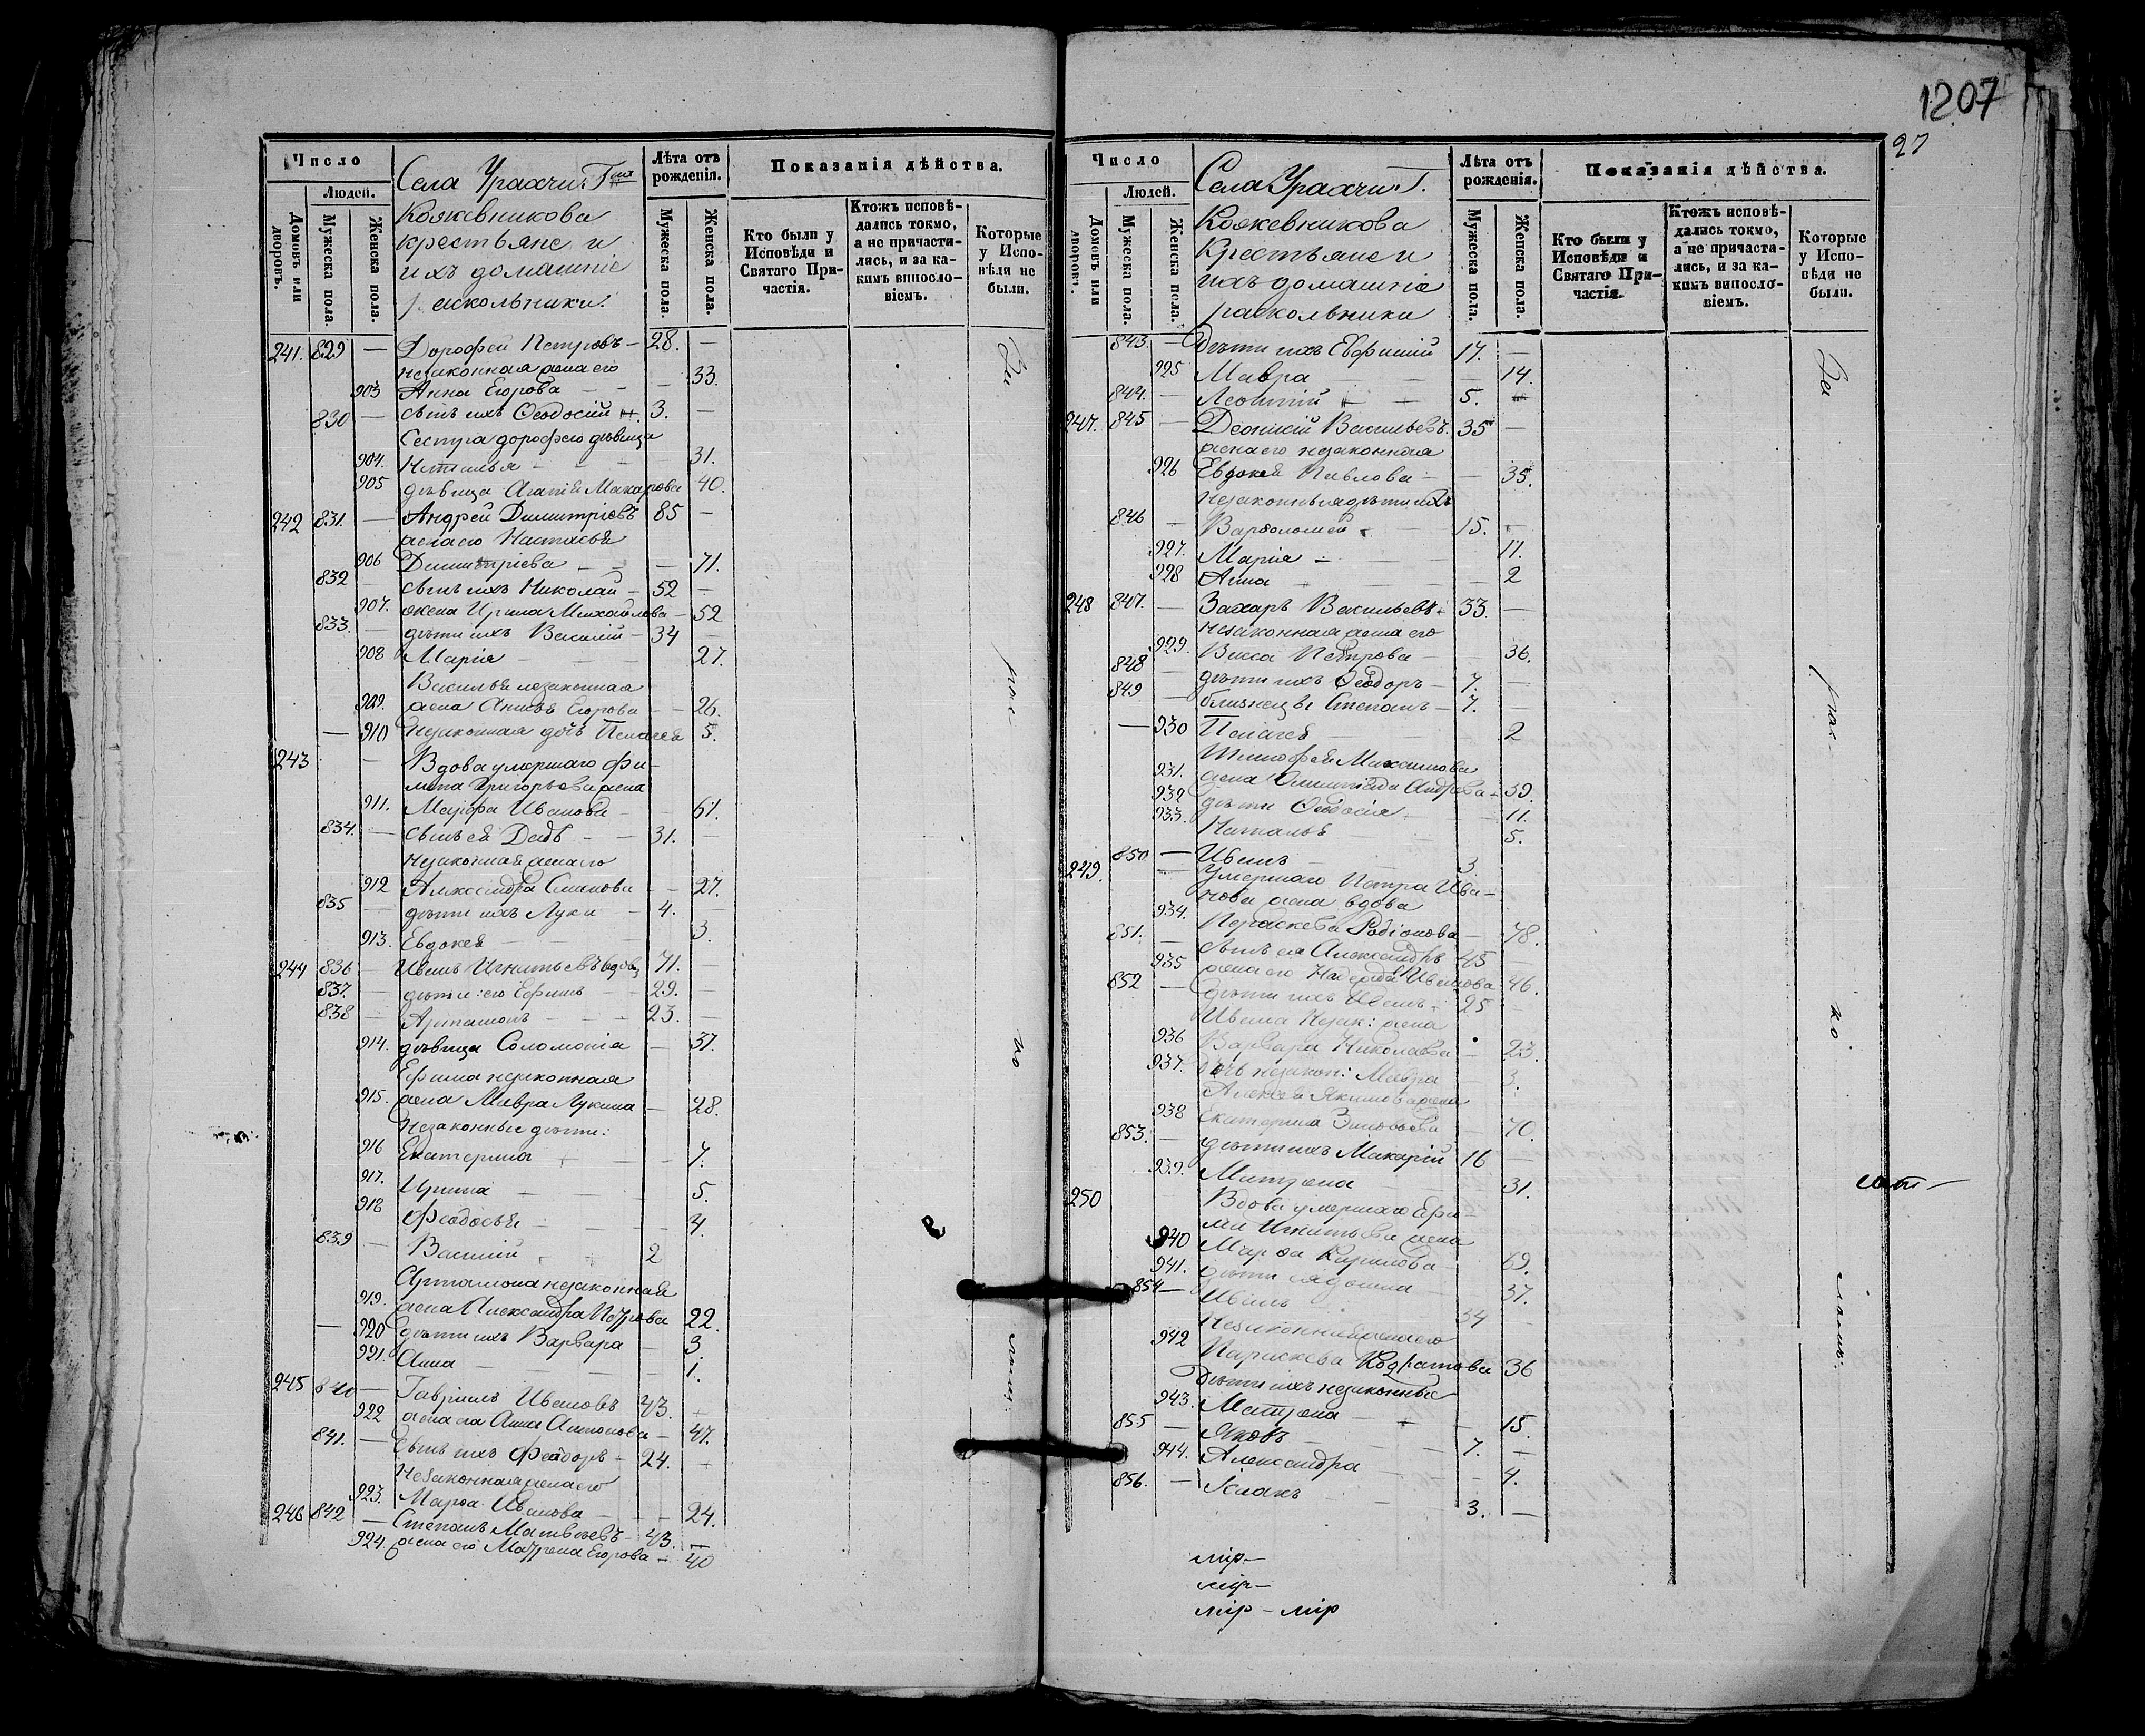 1207
27
Число
Людей.
Домовъ или дворовъ.
Мужеска пола
Женска пола.
Села Урахчи Г
Кожевникова
крестьяне и
ихъ домашніе
раскольники:
Лѣта отъ рожденія.
Мужеска пола.
Женска пола.
Показанія дѣйства.
Кто были у Исповѣди и Святаго Причастія.
Ктожъ исповѣдались токмо, а не причастились, и за какимъ винословіемъ.
Которые у Исповѣди не были.
241. 829 — Дорофей Петровъ — 28. —
незаконная жена его
903 Анна Егорова — — — 33.
830 — сынъ ихъ Ѳеодосій 3. —
Сестра дорофею дѣвица
904. Наталья — — — 31.
905 дѣвица Агапія Макарова 40.
242 831. — Андрей Димитріевъ 85 —
жена его Настасья
906 Димитріева — — — 71.
832 — сынъ ихъ Николай — 52 —
907. жена Ирина Михайлова — 52
833. — дѣти ихъ Василій — 34 —
908 Марія — — — 27.
Василья незаконная
909. жена Анисья Егорова — — 26.
— 910 Незаконная дочь Пелагея 5.
243 — Вдова умершаго Фи-
липа Григорьева жена
911. Марфа Иванова — 61.
834. — сынъ ея Давидъ — — 31. —
незаконная жена его
912 Александра Семенова — — 27.
835 — дѣти ихъ Лука — 4. —
913. Евдокея — — — 3.
244 836 — Иванъ Игнатьевъ вдовц 71. —
837. — дѣти: его Ефимъ — — 29. —
838 — Артамонъ — — — 23. —
914. дѣвица Соломонія — 37.
Ефима незаконная
915. жена Мавра Лукина — 28.
Незаконные дѣти:
916 Екатерина — — 7.
917. Ирина — — — 5.
918 Феодосья — — — 4.
839 — Василій 2
Артамона незаконная
919. жена Александра Петрова 22.
— 920 дѣти ихъ Варвара — 3
921. Анна — — — 1.
245 840 — Гаврилъ Ивановъ 43. —
922 жена его Анна Антонова — 47.
841. — сынъ ихъ Феодоръ — 24. —
Незаконная жена его
923. Марѳа Иванова — — — 24.
246 842 — Степанъ Матвѣевъ — 43. —
924. жена его Матрена Егорова — 40
Число
Людей.
Домовъ или дворовъ.
Мужеска пола.
Женска пола.
Села Урахчи Г.
Кожевникова
Крестьяне и
ихъ домашніе
раскольники
Лѣта отъ рожденія.
Мужеска пола.
Женска пола.
Показанія дѣйства.
Кто были у Исповѣди и Святаго Причастія.
Ктожъ исповѣдались токмо, а не причастились, и за какимъ винословіемъ.
Которые у Исповѣди не были.
843. — Дѣти ихъ Евфимій 17. —
925 Мавра — — — 14.
844. — Леонтій 5.
247. 845 — Леонтій Васильевъ. 35 —
жена его незаконная
926 Евдокея Павлова — — 35.
Незаконныя дѣти ихъ
846 — Варѳоломей — 15. —
927. Марія — — 11.
928 Анна — — 2
248 847. — Захаръ Васильевъ. 33. —
Незаконная жена его
929. Васса Петрова — — 36.
848 — дѣти ихъ Ѳеодоръ — 7. —
849 — близнецы Степанъ — 7. —
— 930 Пелагея — — 2
Тимофея Михайлова
931. жена Олимпіада Андреева — 39.
932 дѣти Ѳеодосія — — 11.
933. Наталья — 5.
850 — Иванъ — 3.
249. — Умершаго Петра Ива-
нова жена вдова
934. Параскева Родіонова — 78.
851. — сынъ ея Александръ 45 —
935 жена его Надежда Иванова 46.
852 — дѣти ихъ Иванъ — 25 —
Ивана Незак: жена
936 Варвара Николаева — 23.
937. Дочь незакон: Мавра — 3.
Алексея Якимова жена
938 Екатерина Зиновьева — 70.
853. — дѣти ихъ Макарій 16 —
939. Матрена — — 31.
250 Вдова умершаго Ефи-
ма Игнатьева жена
940 Марѳа Кирилова — 69.
941. 37.
854 — Иванъ 34 —
Незаконная жена его
942 Параскева Кодратова 36
Дѣти ихъ незаконные
943. Матрена — — — 15.
855 — Яковъ — — — 7. —
944. Александра — — 4.
856. — Исаакъ — — 3. —